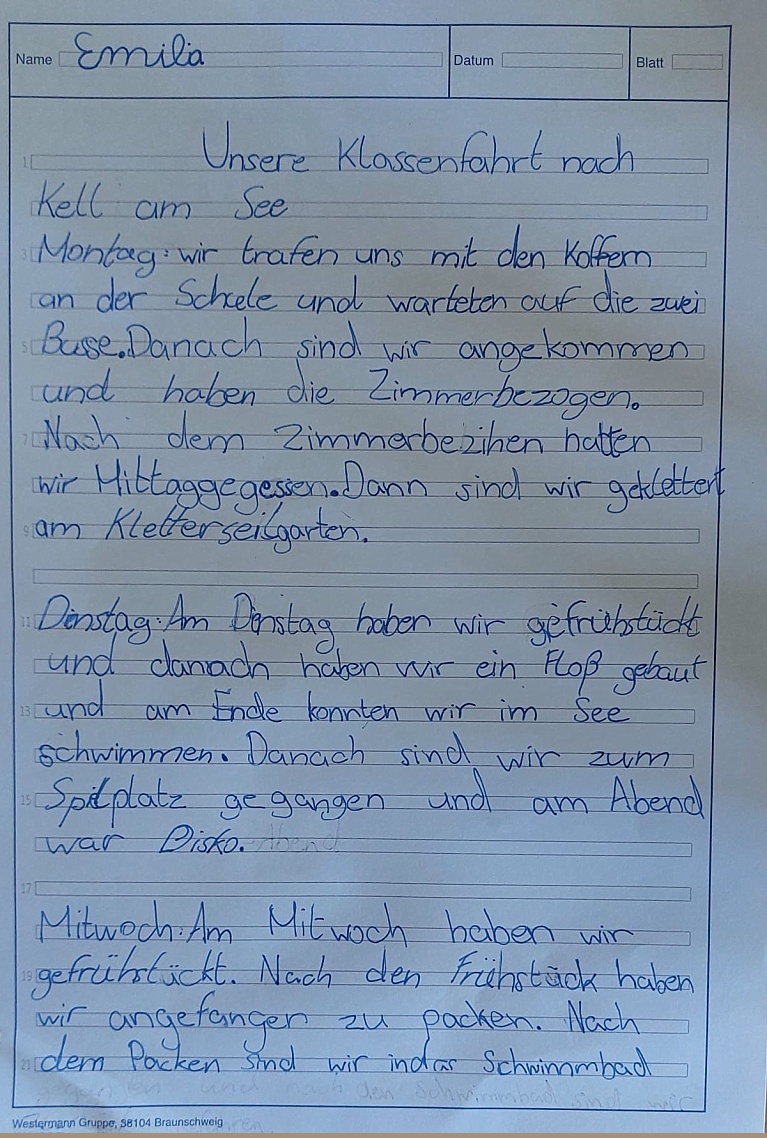 Name Emilia Datum Blatt
1 Unsere Klassenfahrt nach
Kell am See
3 Montag: wir trafen uns mit den Koffern
an der Schule und warteten auf die zwei
5 Busse. Danach sind wir angekommen
und haben die Zimmerbezogen.
7 Nach dem Zimmerbezihen hatten
wir Mittaggegessen. Dann sind wir geklettert
9 am Kletterseilgarten.
11 Dinstag: Am Dinstag haben wir gefrühstückt
und danach haben wir ein Floß gebaut
13 und am Ende konnten wir im See
schwimmen. Danach sind wir zum
15 Spilplatz gegangen und am Abend
war Disko. Abend
17
Mitwoch: Am Mitwoch haben wir
19 gefrühstückt. Nach den Frühstück haben
wir angefangen zu packen. Nach
21 dem Packen sind wir indas Schwimmbad
und nach den Schwimmbad sind wir
Westermann Gruppe, 38104 Braunschweig